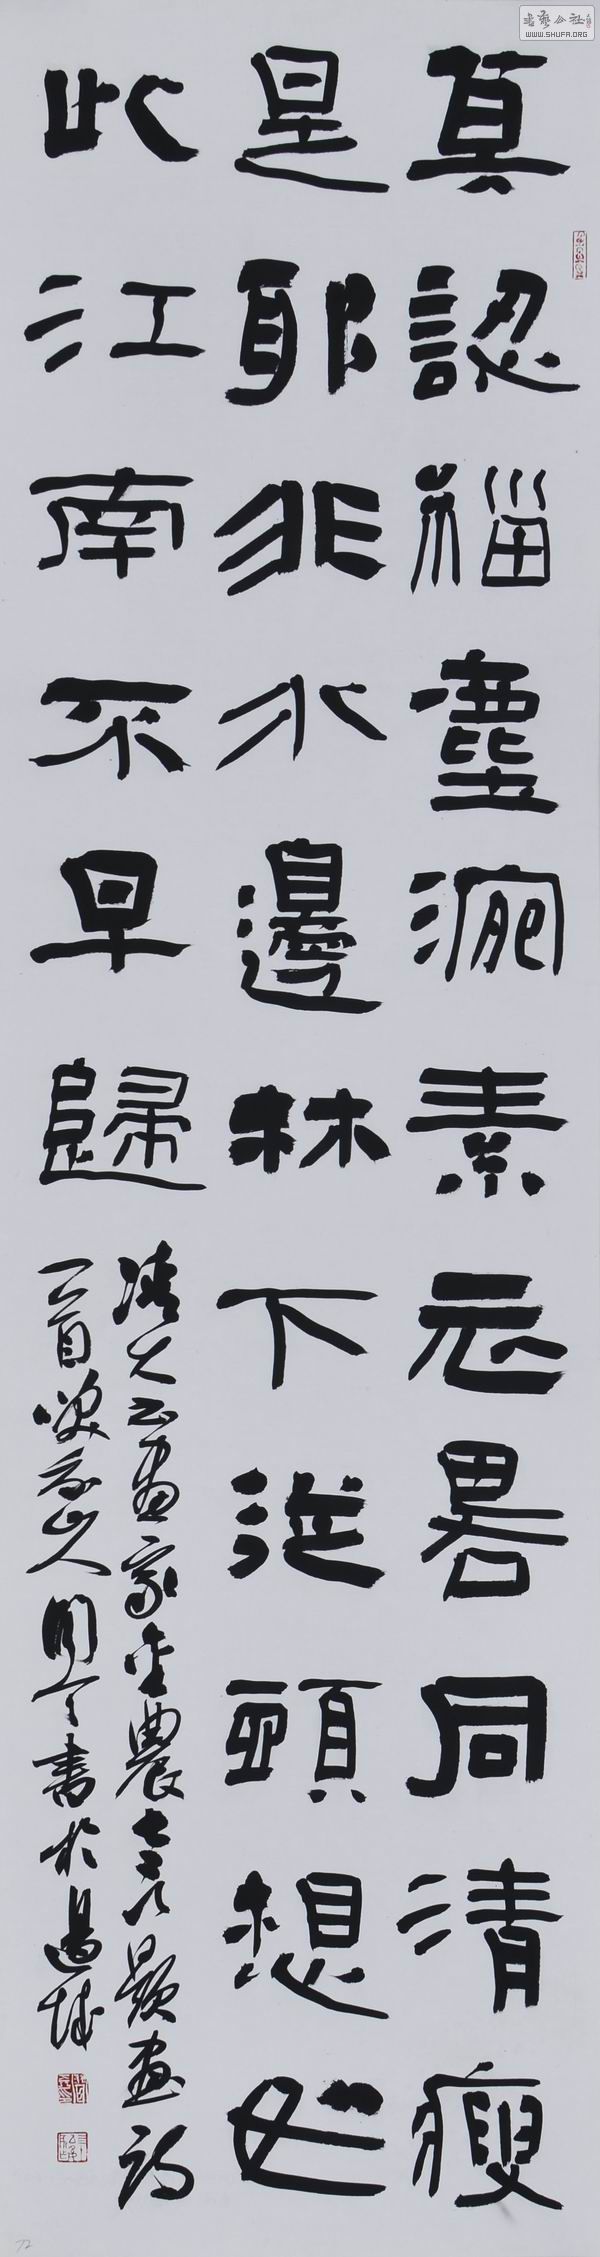 書藝公社
WWW.SHUFA.ORG
真認緇塵涴素衣畧同清瘦
是耶非水邊林下從頭想
此江南不早歸
清大書畫家金農七言題畫詩
一首 山人 書於